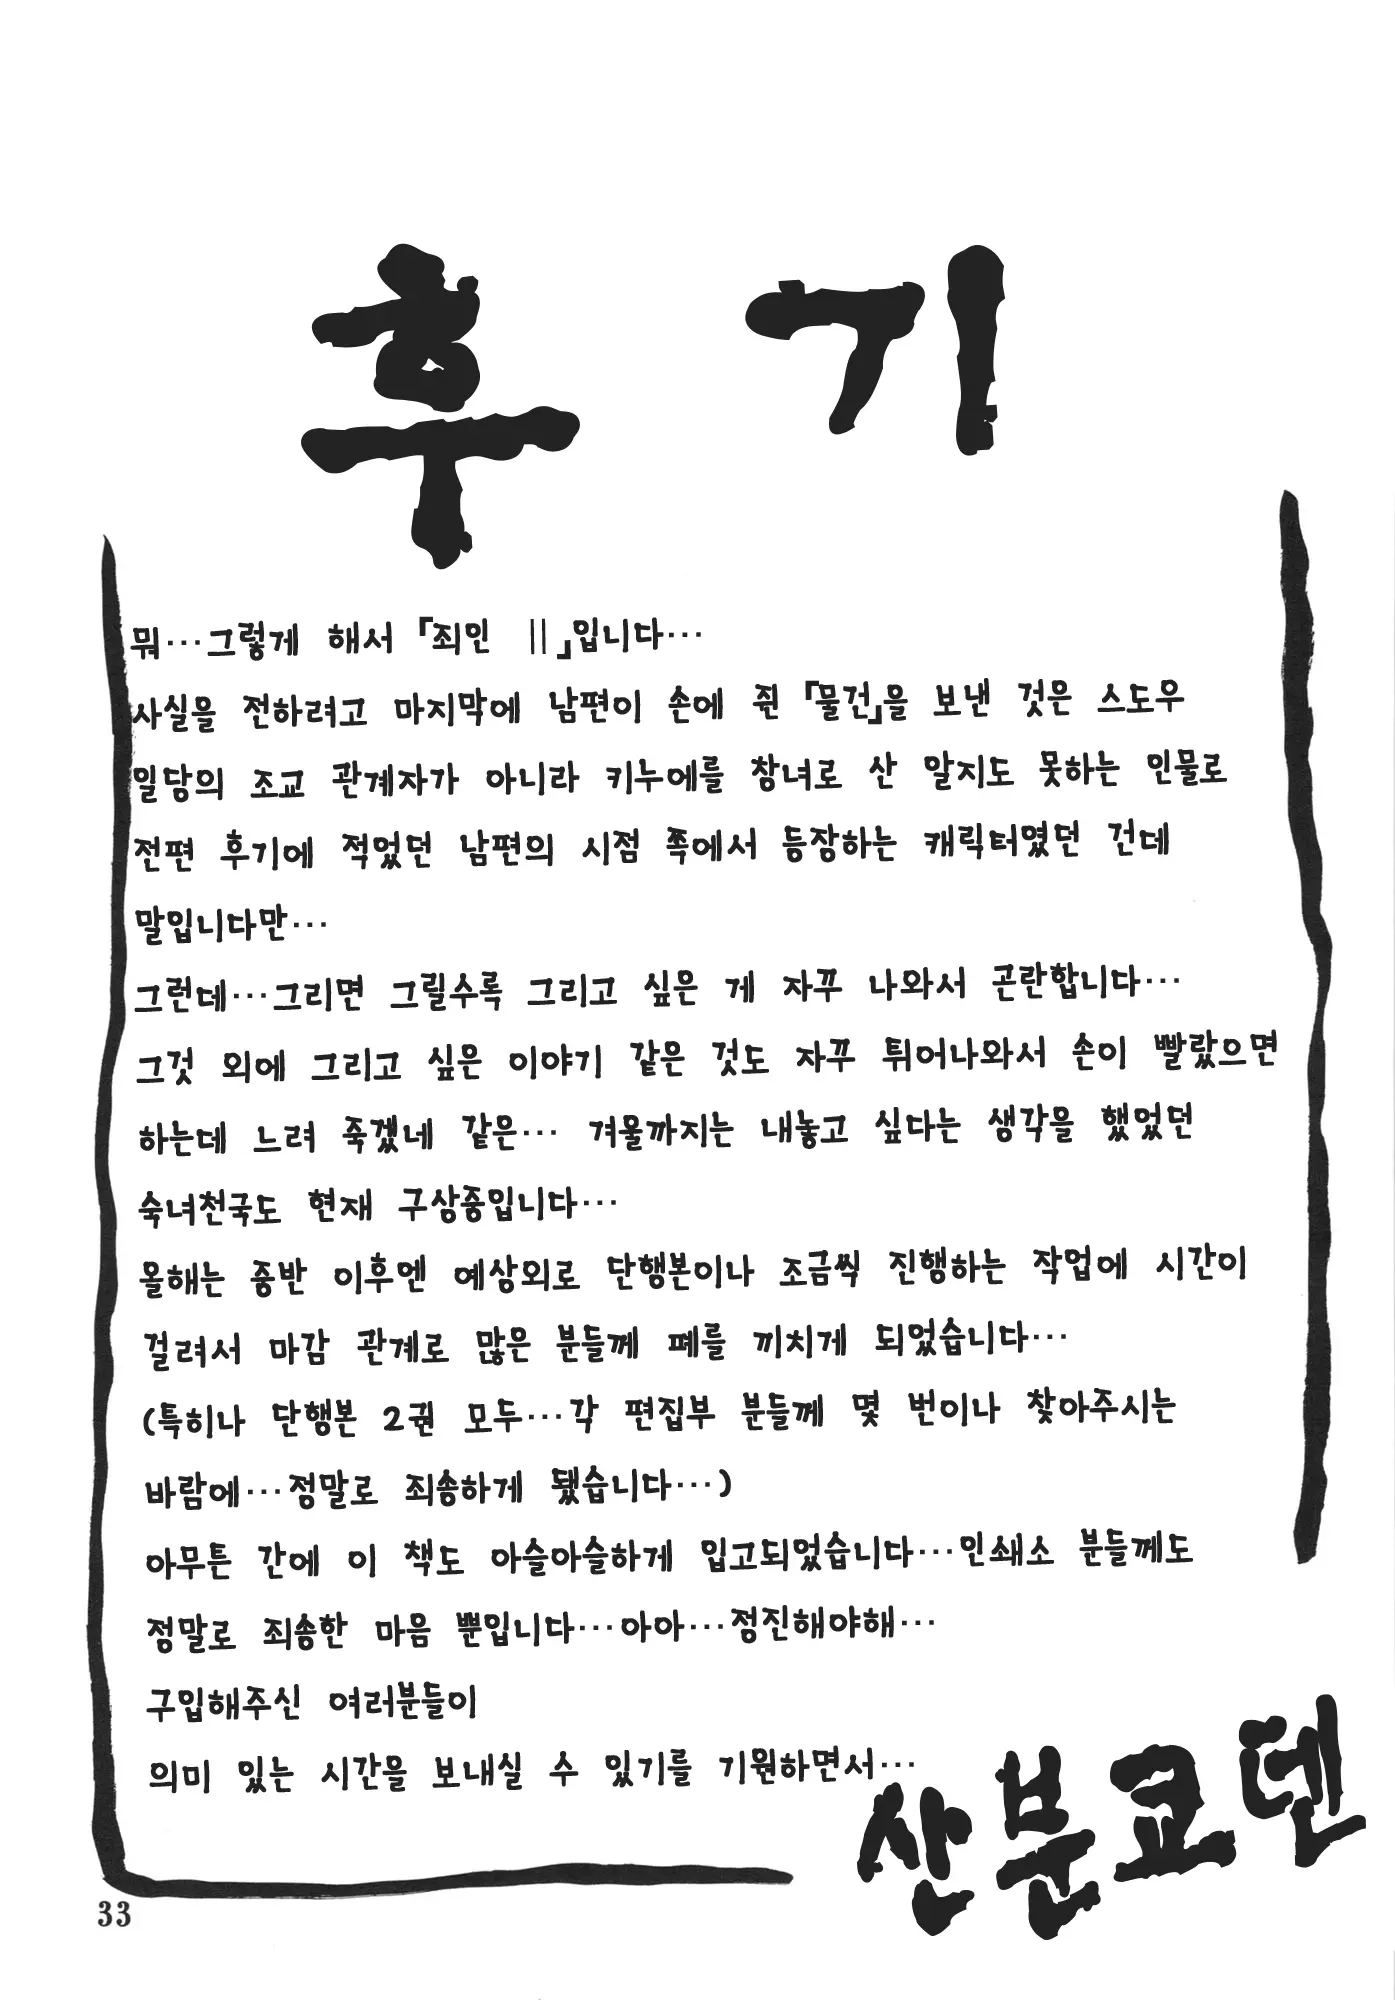 후기
뭐…그렇게 해서 「죄인 Ⅱ」입니다…
사실을 전하려고 마지막에 남편이 손에 쥔 「물건」을 보낸 것은 스도우
일당의 조교 관계자가 아니라 키누에를 창녀로 산 알지도 못하는 인물로
전편 후기에 적었던 남편의 시점 쪽에서 등장하는 캐릭터였던 건데
말입니다만…
그런데…그리면 그릴수록 그리고 싶은 게 자꾸 나와서 곤란합니다…
그것 외에 그리고 싶은 이야기 같은 것도 자꾸 튀어나와서 손이 빨랐으면
하는데 느려 죽겠네 같은… 겨울까지는 내놓고 싶다는 생각을 했었던
숙녀천국도 현재 구상중입니다…
올해는 중반 이후엔 예상외로 단행본이나 조금씩 진행하는 작업에 시간이
걸려서 마감 관계로 많은 분들께 폐를 끼치게 되었습니다…
(특히나 단행본 2권 모두…각 편집부 분들께 몇 번이나 찾아주시는
바람에…정말로 죄송하게 됐습니다…)
아무튼 간에 이 책도 아슬아슬하게 입고되었습니다…인쇄소 분들께도
정말로 죄송한 마음 뿐입니다…아아…정진해야해…
구입해주신 여러분들이
의미 있는 시간을 보내실 수 있기를 기원하면서…
산분쿄덴
33